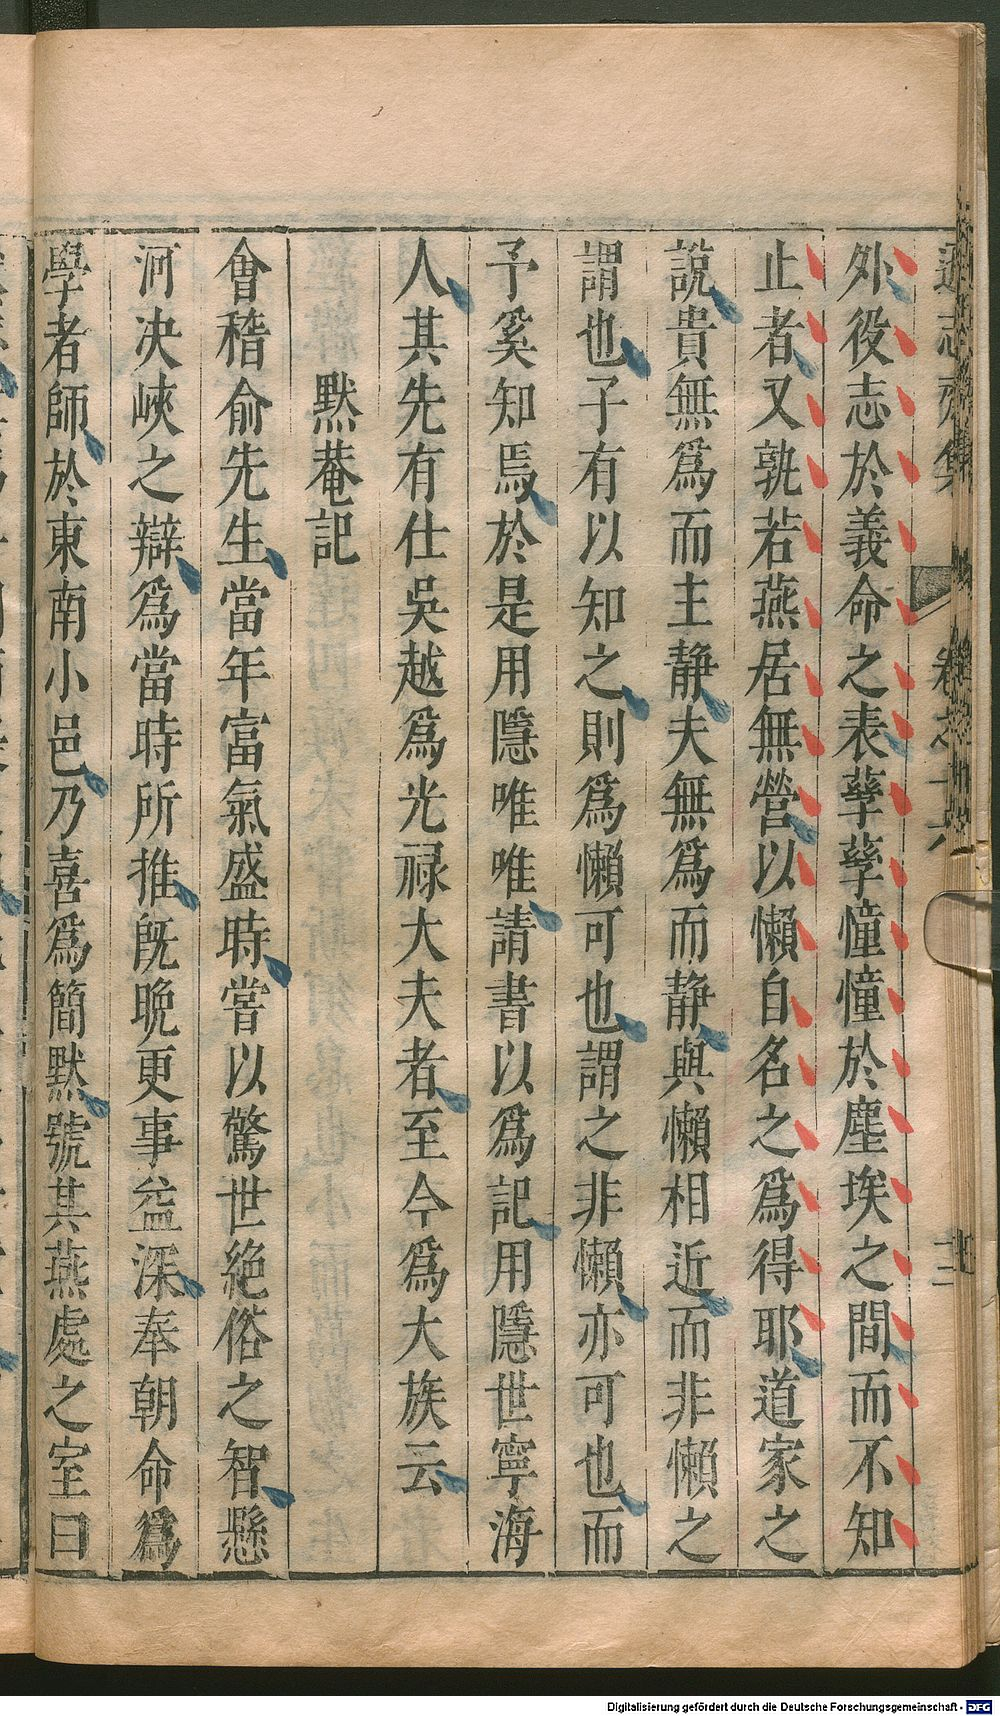 外役志於義命之表孳孳憧憧於塵埃之間而不知
止者又孰若燕居無營以懶自名之爲得耶道家之
說貴無爲而主静夫無爲而静與懶相近而非懶之
謂也子有以知之則爲懶可也謂之非懶亦可也而
予奚知焉於是用隱唯唯請書以爲記用隱世寧海
人其先有仕吳越爲光禄大夫者至今爲大族云
默菴記
會稽俞先生當年富氣盛時嘗以驚世絶俗之智懸
河决峽之辯爲當時所推旣晩更事益深奉朝命爲
學者師於東南小邑乃喜爲簡默號其燕處之室曰
Digitalisierung gefördert durch die Deutsche Forschungsgemeinschaft - DFG